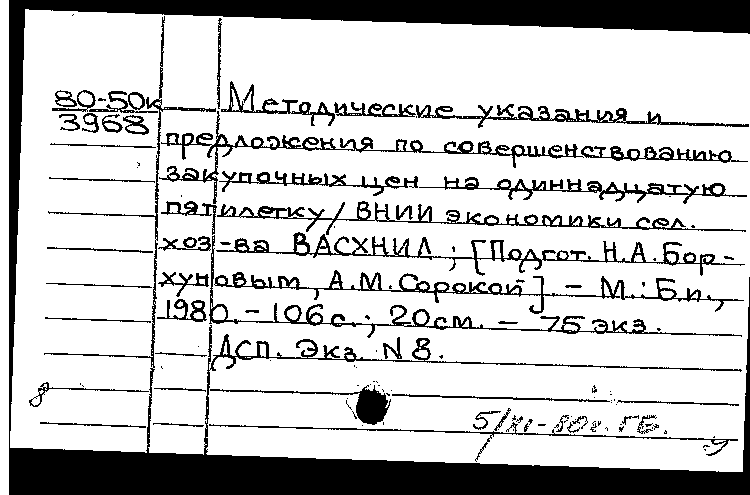 80-50к Методические указания и
3968
предложения по совершенствованию
закупочных цен на одиннадцатую
пятилетку / ВНИИ экономики сел.
хоз-ва ВАСХНИЛ ; [Подгот. Н.А. Бор-
хуновым, А.М. Сорокой]. - М.: Б.и.,
1980. - 106 с.; 20 см. - 75 экз.
ДСП. Экз. N 8.
8
5/XI-80г. ГБ.